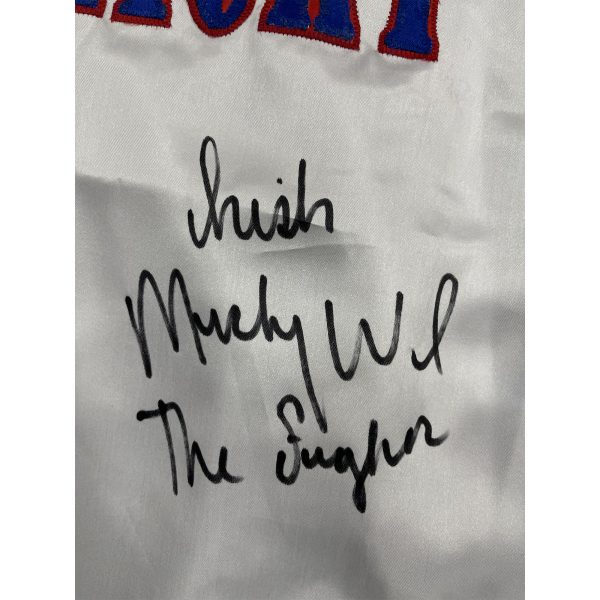 Irish
Micky Ward
The Fighter